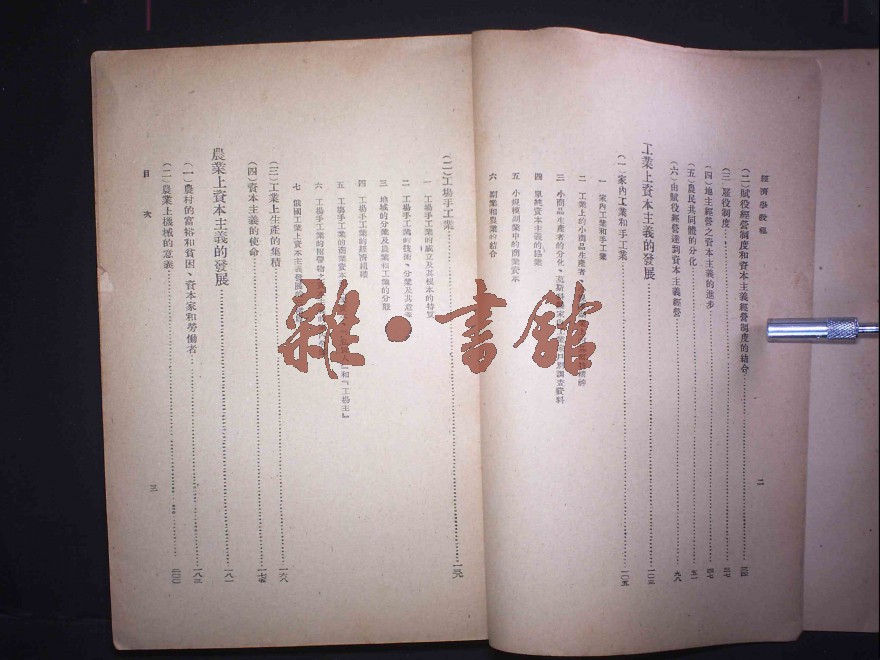 經濟學教程
二
(二)賦役經營制度和資本主義經營制度的結合
(三)雇役制度
(四)地主經營之資本主義的進步
(五)農民共同體的分化
(六)由賦役經營達到資本主義經營 九六
工業上資本主義的發展 一〇三
(一)家內工業和手工業 一〇五
一 家內工業和手工業
二 工業上的小商品生產者
三 小商品生產者的分化、莫斯科 調查資料
四 單純資本主義的協業
五 小規模副業中的商業資本
六 副業和農業的結合
(二)工場手工業 一三九
一 工場手工業的成立及其根本的特質
二 工場手工業的技術、分業及其意義
三 地域的分業及農業和工業的分離
四 工場手工業的經濟組織
五 工場手工業的商業資本 和『工場主』
六 工場手工業的
七 俄國工業上資本主義發展
(三)工業上生產的集積 一六八
(四)資本主義的使命 一七五
農業上資本主義的發展 一八一
(一)農村的富裕和貧困、資本家和勞働者 一八三
(二)農業上機械的意義 二〇〇
目次
三
雜・書館